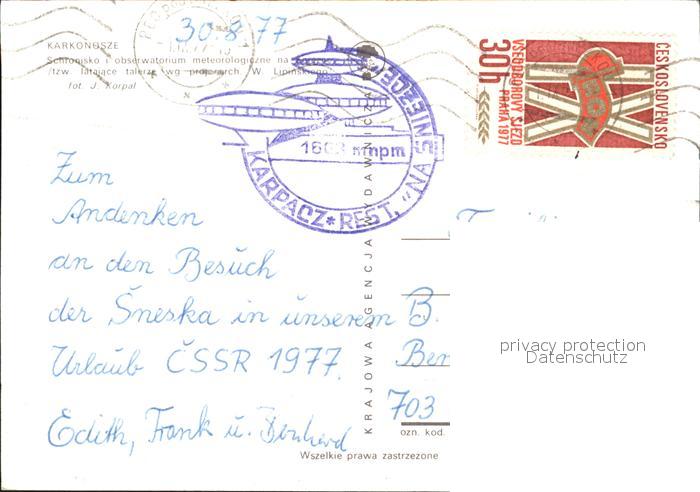 30.8.77
KARKONOSZE
Schronisko i obserwatorium meteorologiczne na
/tzw. latające talerze wg proj. arch. W. Lipińskiego
fot. J. Korpal
1603 m npm
KARPACZ * REST. "NA ŚNIEŻCE"
30h
VŠEODBOROVÝ SJEZD
PRAHA 1977
ČESKOSLOVENSKO
IX
Zum
Andenken
an den Besuch
der Śneska in unserem
Urlaub ČSSR 1977.
Edith, Frank u. Bernhard
KRAJOWA AGENCJA WYDAWNICZA
B.
703
ozn. kod.
Wszelkie prawa zastrzeżone
privacy protection
Datenschutz